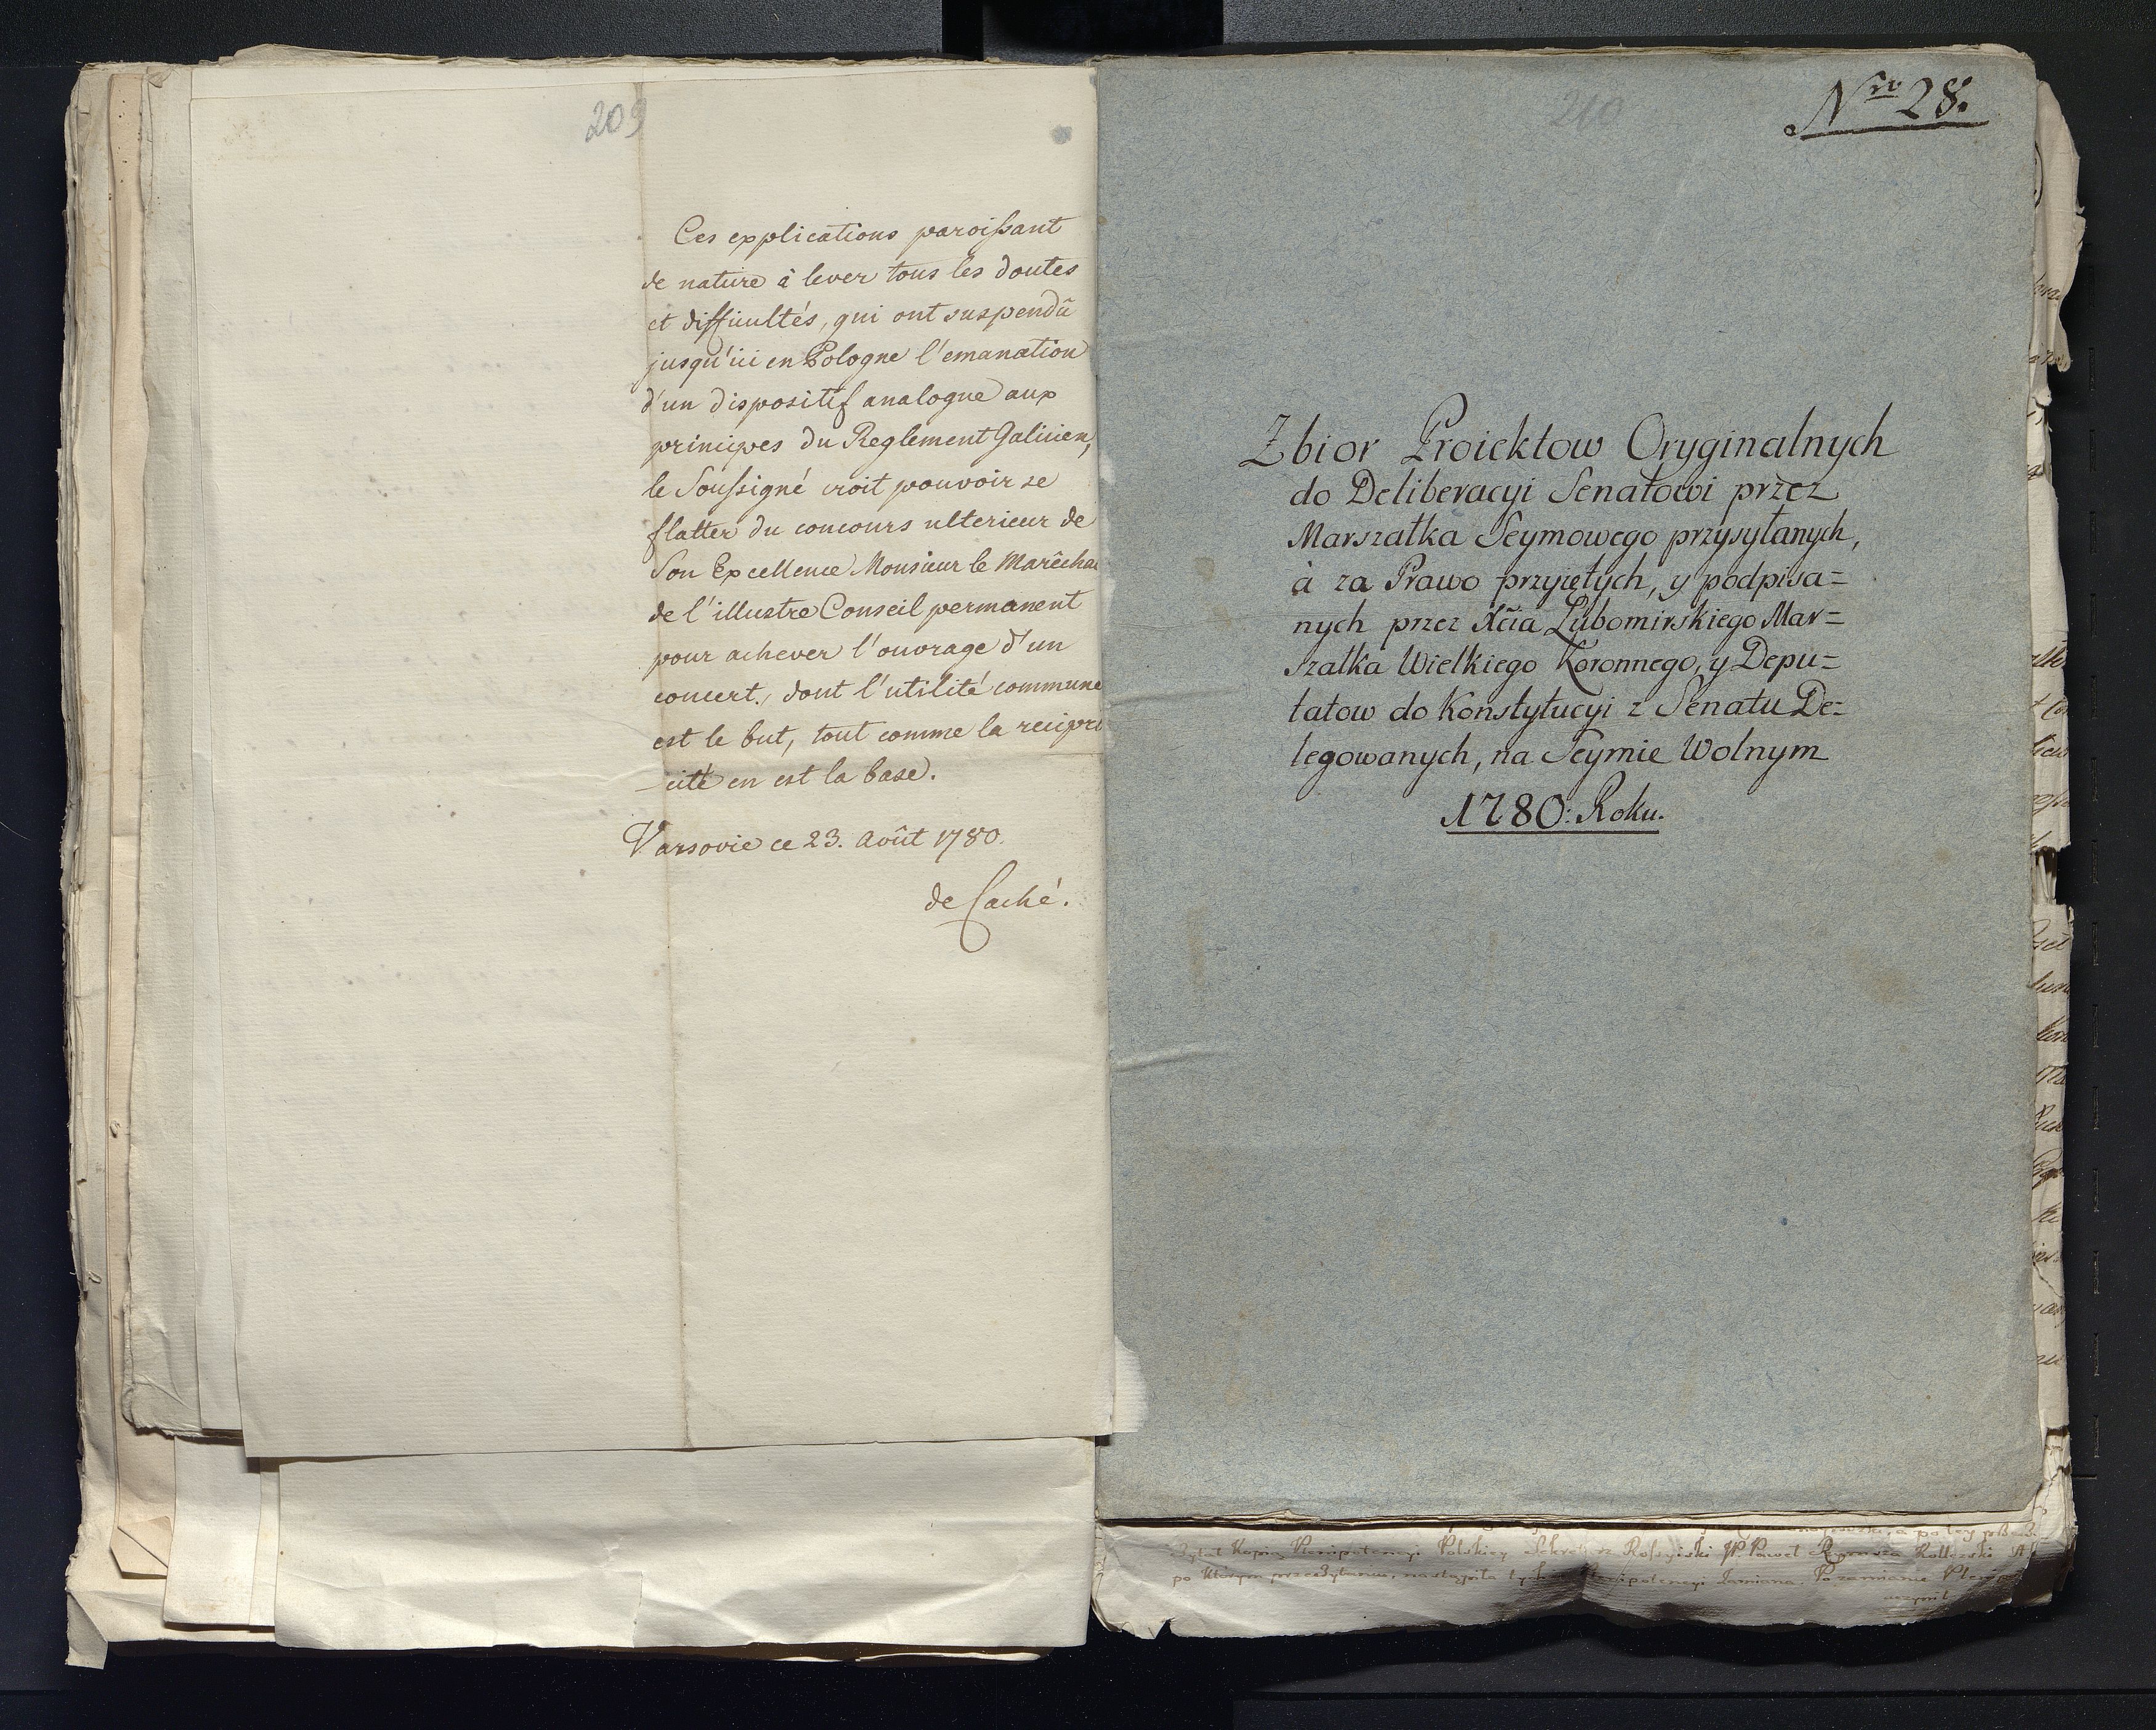 209
Ces explications paroissant
de nature à lever tous les doutes
et difficultés, qui ont suspendû
jusqu'ici en Pologne l'emanation
d'un dispositif analogue aux
principes du Reglement Galicien,
le Soussigné croit pouvoir se
flatter du concours ulterieur de
Son Excellence Monsieur le Marêchal
de l'illustre Conseil permanent
pour achever l'ouvrage d'un
concert, dont l'utilité commune
est le but, tout comme la recipro
cité en est la base.
Varsovie ce 23. Août 1780.
de Caché.
210
Nro 28.
Zbior Proiektow Oryginalnych
do Deliberacyi Senatowi przez
Marszałka Seymowego przysyłanych,
à za Prawo przyiętych, y podpisa=
nych przez Xcia Lubomirskiego Mar=
szałka Wielkiego Koronnego, y Depu=
tatow do Konstytucyi z Senatu De=
legowanych, na Seymie Wolnym
1780: Roku.
Kopią Plenipotencyi Polskiey Rossyiski JP. Paweł
po którym przeczytaniu, nastąpiła Plenipotencyi Zamiana. Po zamianie